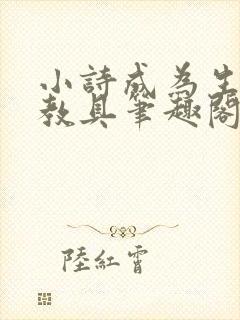 小詩成為生
教具筆趣閣
陸紅霄